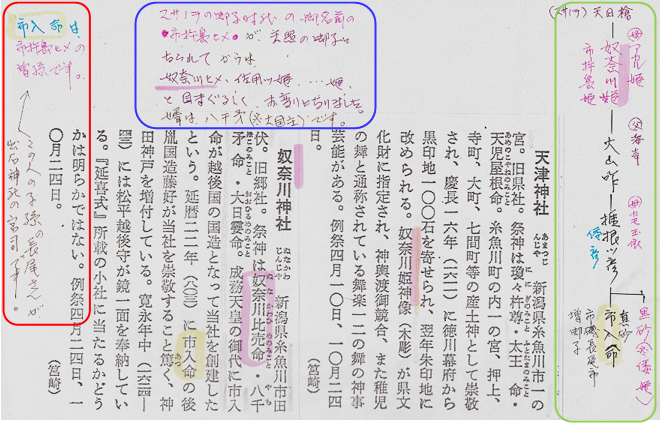 (スサノヲ) 天日槍
(母アカル姫)
奴奈川姫
市杵島姫
(父海幸)
大山咋
(母
椎根ツ彦
市入命
市磯長尾市
曽御子
スサノヲの御子時代の御名前の
市杵島ヒメが、天照の御子に
なられてからは、
奴奈川ヒメ、佐用ツ姫・・・・・姫、
と目まぐるしく、お変りになりました。
婿は、八千矛(大国主)です。
市入命は、
市杵島ヒメの
曽孫です。
この人の子孫の長尾さんが
出石神社の宮司です。
天津神社 あまつじんじゃ 新潟県糸魚川市一の
宮。旧県社。祭神は瓊々杵尊・太玉命・
天児屋根命。糸魚川町の内一の宮、押上、
寺町、大町、七間町等の産土神として崇敬
され、慶長一六年(一六一一)に徳川幕府から
黒印地一〇〇石を寄せられ、翌年朱印地に
改められる。奴奈川姫神像(木彫)が県文
化財に指定され、神輿渡御競合、また稚児
の舞と通称されている舞楽一二の舞の神事
芸能がある。例祭四月一〇日、一〇月二四
日。 (筥崎)
奴奈川神社 ぬなかわじんじゃ 新潟県糸魚川市田
伏。旧郷社。祭神は奴奈川比売命・八千
矛命・大日霎命。成務天皇の御代に市入
命が越後国の国造となって当社を創建した
という。延暦二二年(八〇三)に市入命の後
胤国造藤好が当社を崇敬すること篤く、神
田神戸を増付している。寛永年中(一六二四—
四四)には松平越後守が鏡一面を奉納してい
る。『延喜式』所載の小社に当たるかどう
かは明らかではない。例祭四月二四日、一
〇月二四日。 (筥崎)